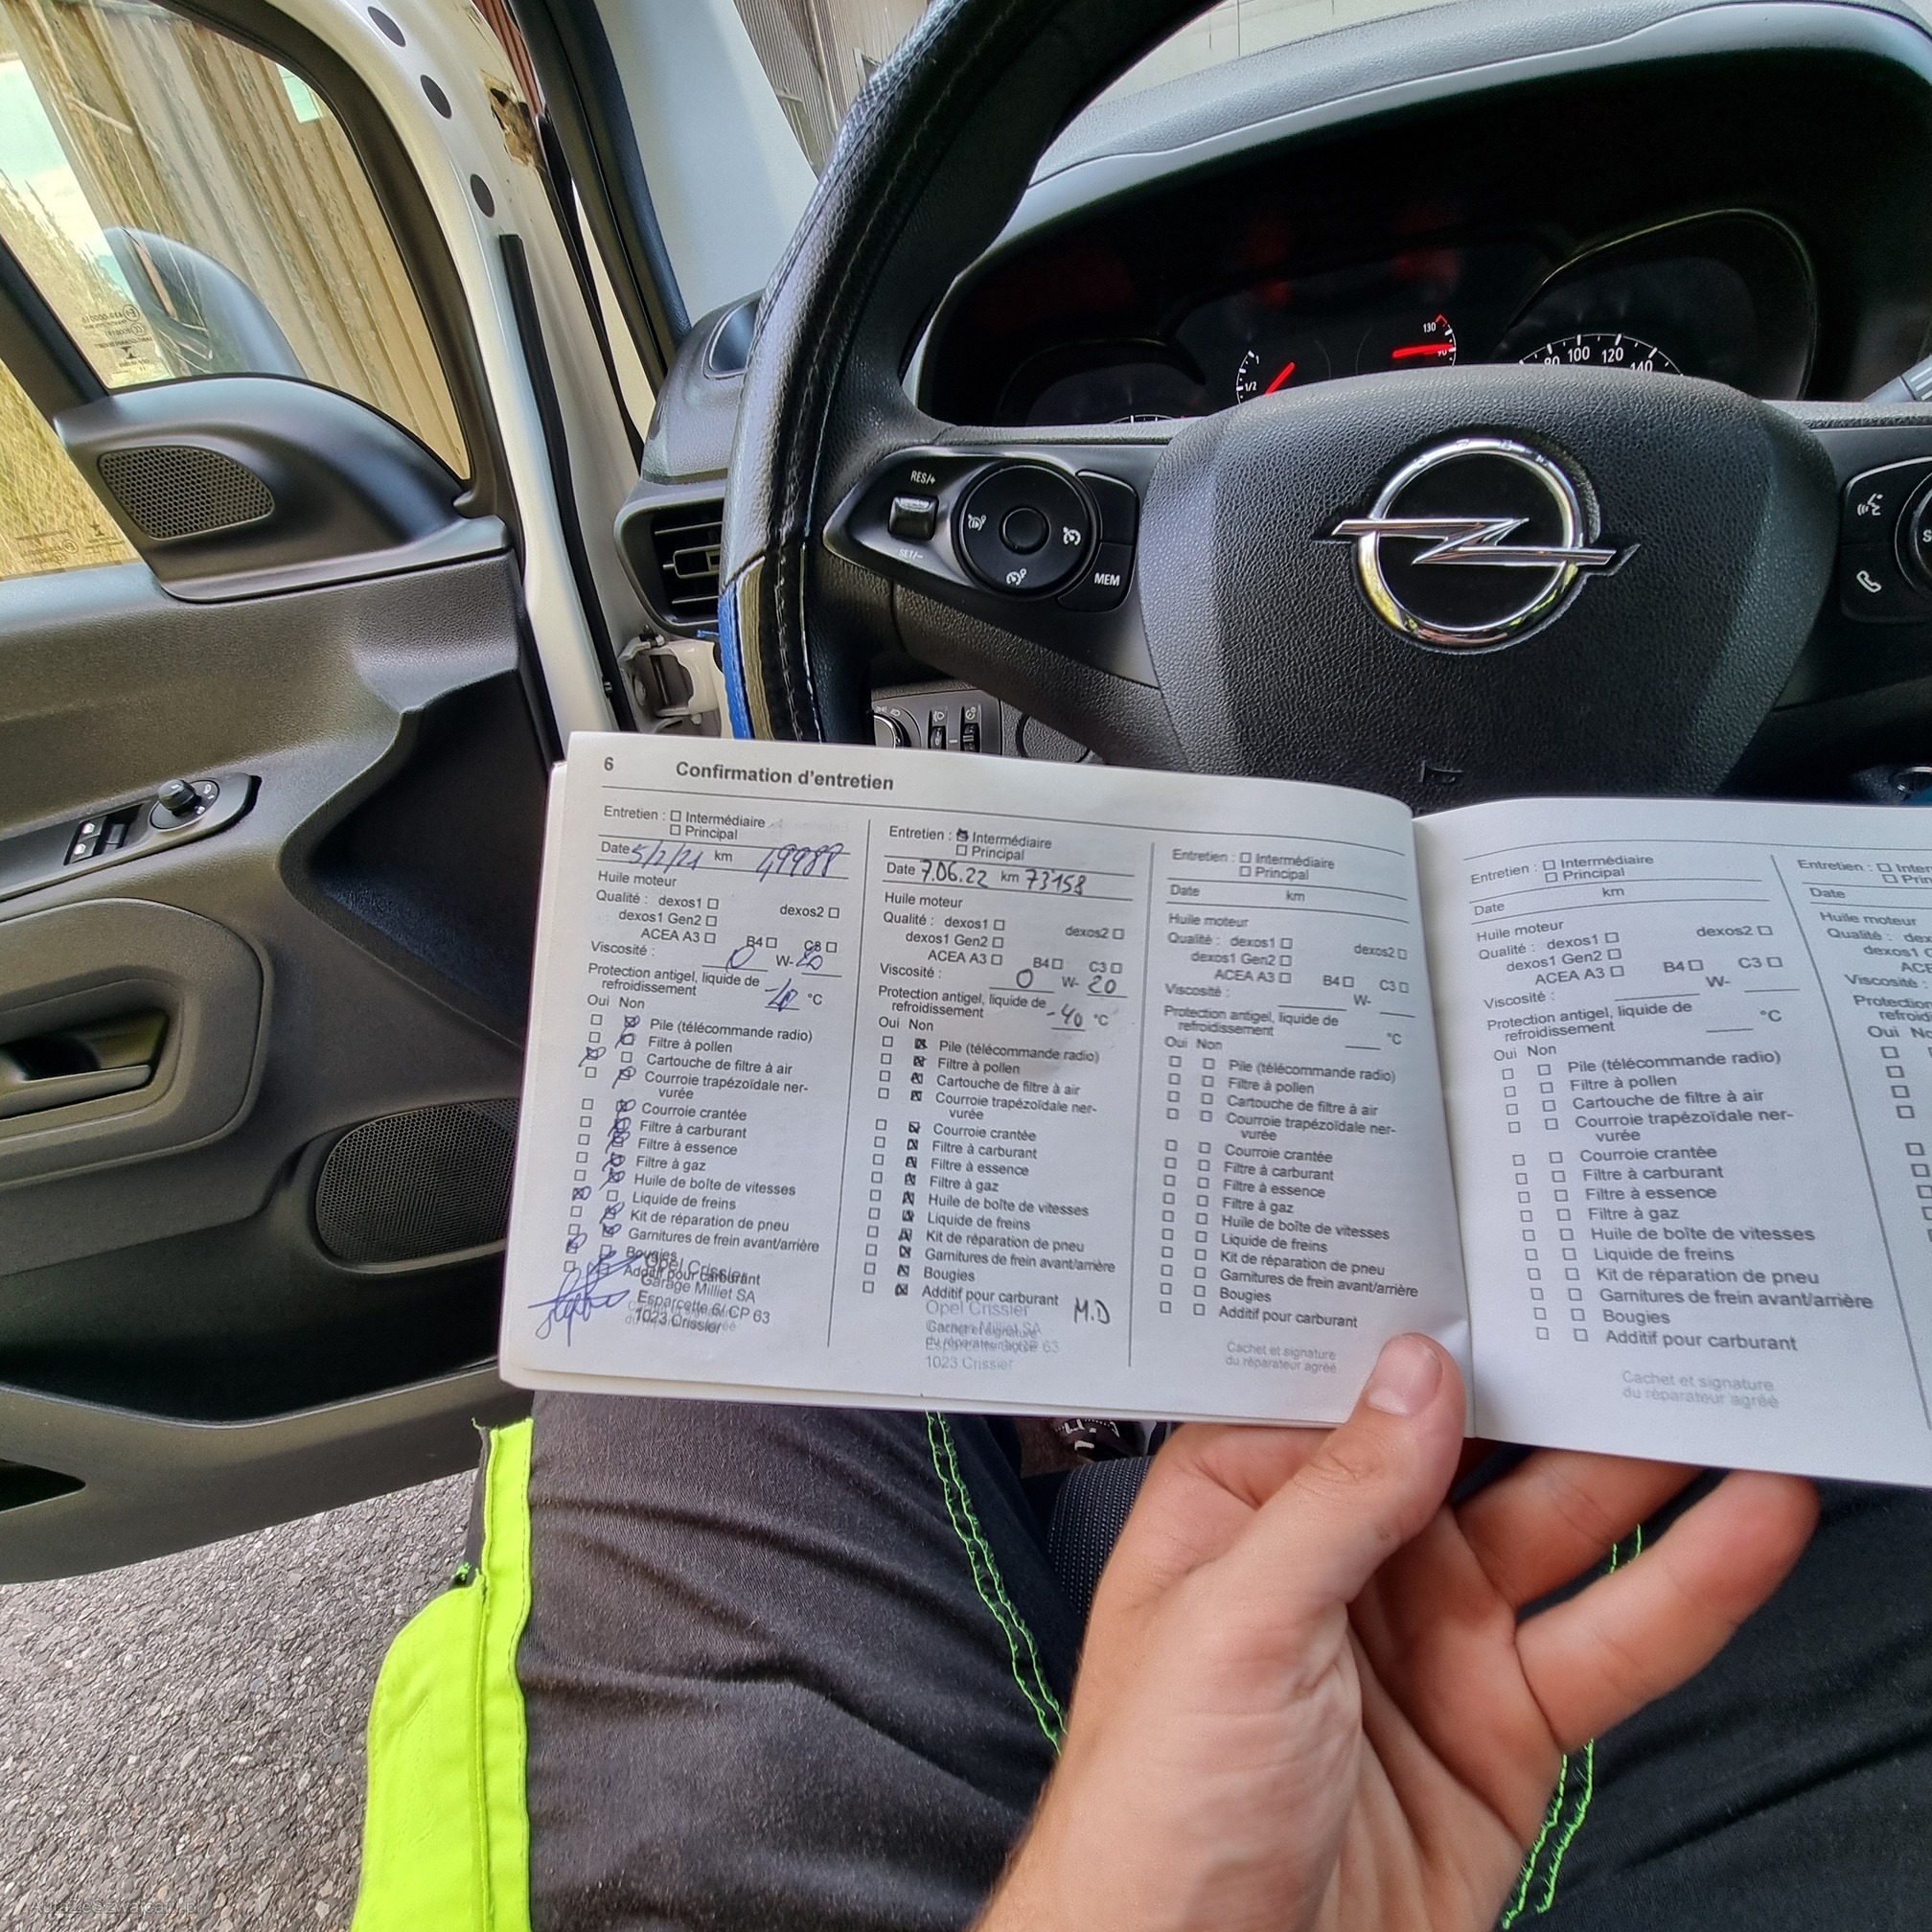 130
90
1
1/2
80 100 120 140
RES/+
SET/-
MEM
6 Confirmation d'entretien
Entretien : ☐ Intermédiaire
☐ Principal
Date 5/2/21 km 49988
Huile moteur
Qualité : dexos1 ☐ dexos2 ☐
dexos1 Gen2 ☐
ACEA A3 ☐ B4 ☐ C3 ☐
Viscosité : 0 W- 20
Protection antigel, liquide de
refroidissement °C
Oui Non
Pile (télécommande radio)
Filtre à pollen
Cartouche de filtre à air
Courroie trapézoïdale ner-
vurée
Courroie crantée
Filtre à carburant
Filtre à essence
Filtre à gaz
Huile de boîte de vitesses
Liquide de freins
Kit de réparation de pneu
Garnitures de frein avant/arrière
Bougies
Additif pour carburant
Opel Crissier
Garage Milliet SA
Esparcette 6/ CP 63
1023 Crissier
Entretien : ☒ Intermédiaire
☐ Principal
Date 7.06.22 km 73158
Huile moteur
Qualité : dexos1 ☐ dexos2 ☐
dexos1 Gen2 ☐
ACEA A3 ☐ B4 ☐ C3 ☐
Viscosité : 0 W- 20
Protection antigel, liquide de
refroidissement -40 °C
Oui Non
☐ ☒ Pile (télécommande radio)
☐ ☒ Filtre à pollen
☐ ☒ Cartouche de filtre à air
☐ ☒ Courroie trapézoïdale ner-
vurée
☐ ☒ Courroie crantée
☐ ☒ Filtre à carburant
☐ ☒ Filtre à essence
☐ ☒ Filtre à gaz
☐ ☒ Huile de boîte de vitesses
☐ ☒ Liquide de freins
☐ ☒ Kit de réparation de pneu
☐ ☒ Garnitures de frein avant/arrière
☐ ☒ Bougies
☐ ☒ Additif pour carburant
Opel Crissier M.D
Cachet et signature
du réparateur agréé
1023 Crissier
Entretien : ☐ Intermédiaire
☐ Principal
Date km
Huile moteur
Qualité : dexos1 ☐ dexos2 ☐
dexos1 Gen2 ☐
ACEA A3 ☐ B4 ☐ C3 ☐
Viscosité : W-
Protection antigel, liquide de
refroidissement °C
Oui Non
☐ ☐ Pile (télécommande radio)
☐ ☐ Filtre à pollen
☐ ☐ Cartouche de filtre à air
☐ ☐ Courroie trapézoïdale ner-
vurée
☐ ☐ Courroie crantée
☐ ☐ Filtre à carburant
☐ ☐ Filtre à essence
☐ ☐ Filtre à gaz
☐ ☐ Huile de boîte de vitesses
☐ ☐ Liquide de freins
☐ ☐ Kit de réparation de pneu
☐ ☐ Garnitures de frein avant/arrière
☐ ☐ Bougies
☐ ☐ Additif pour carburant
Cachet et signature
du réparateur agréé
Entretien : ☐ Intermédiaire
☐ Principal
Date km
Huile moteur
Qualité : dexos1 ☐ dexos2 ☐
dexos1 Gen2 ☐
ACEA A3 ☐ B4 ☐ C3 ☐
Viscosité : W-
Protection antigel, liquide de
refroidissement °C
Oui Non
☐ ☐ Pile (télécommande radio)
☐ ☐ Filtre à pollen
☐ ☐ Cartouche de filtre à air
☐ ☐ Courroie trapézoïdale ner-
vurée
☐ ☐ Courroie crantée
☐ ☐ Filtre à carburant
☐ ☐ Filtre à essence
☐ ☐ Filtre à gaz
☐ ☐ Huile de boîte de vitesses
☐ ☐ Liquide de freins
☐ ☐ Kit de réparation de pneu
☐ ☐ Garnitures de frein avant/arrière
☐ ☐ Bougies
☐ ☐ Additif pour carburant
Cachet et signature
du réparateur agréé
Entretien : ☐ Inter
☐ Prin
Date
Huile moteur
Qualité : dex
dexos1 G
ACE
Viscosité :
Protection
refroidi
Oui